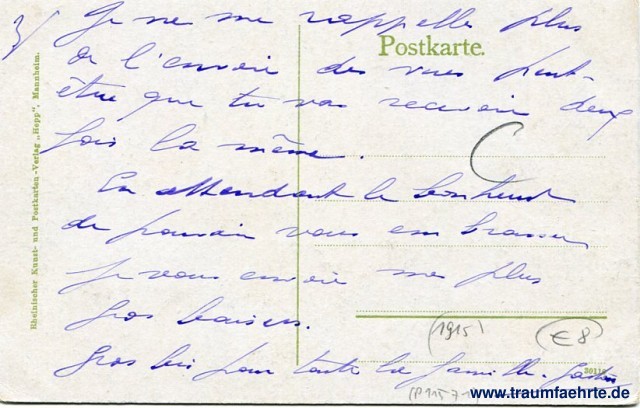 3/
Je ne me rappelle plus
Postkarte.
de l'envoie des vues peut-
être que tu vas recevoir deux
fois la même.
En attendant le bonheur
de pouvoir vous embrasser
Je vous envoie mes plus
gros baisers.
Gros bis pour toute la famille. Gaston
Rheinischer Kunst- und Postkarten-Verlag „Hepp", Mannheim.
(1915)
€ 8
30116
www.traumfaehrte.de